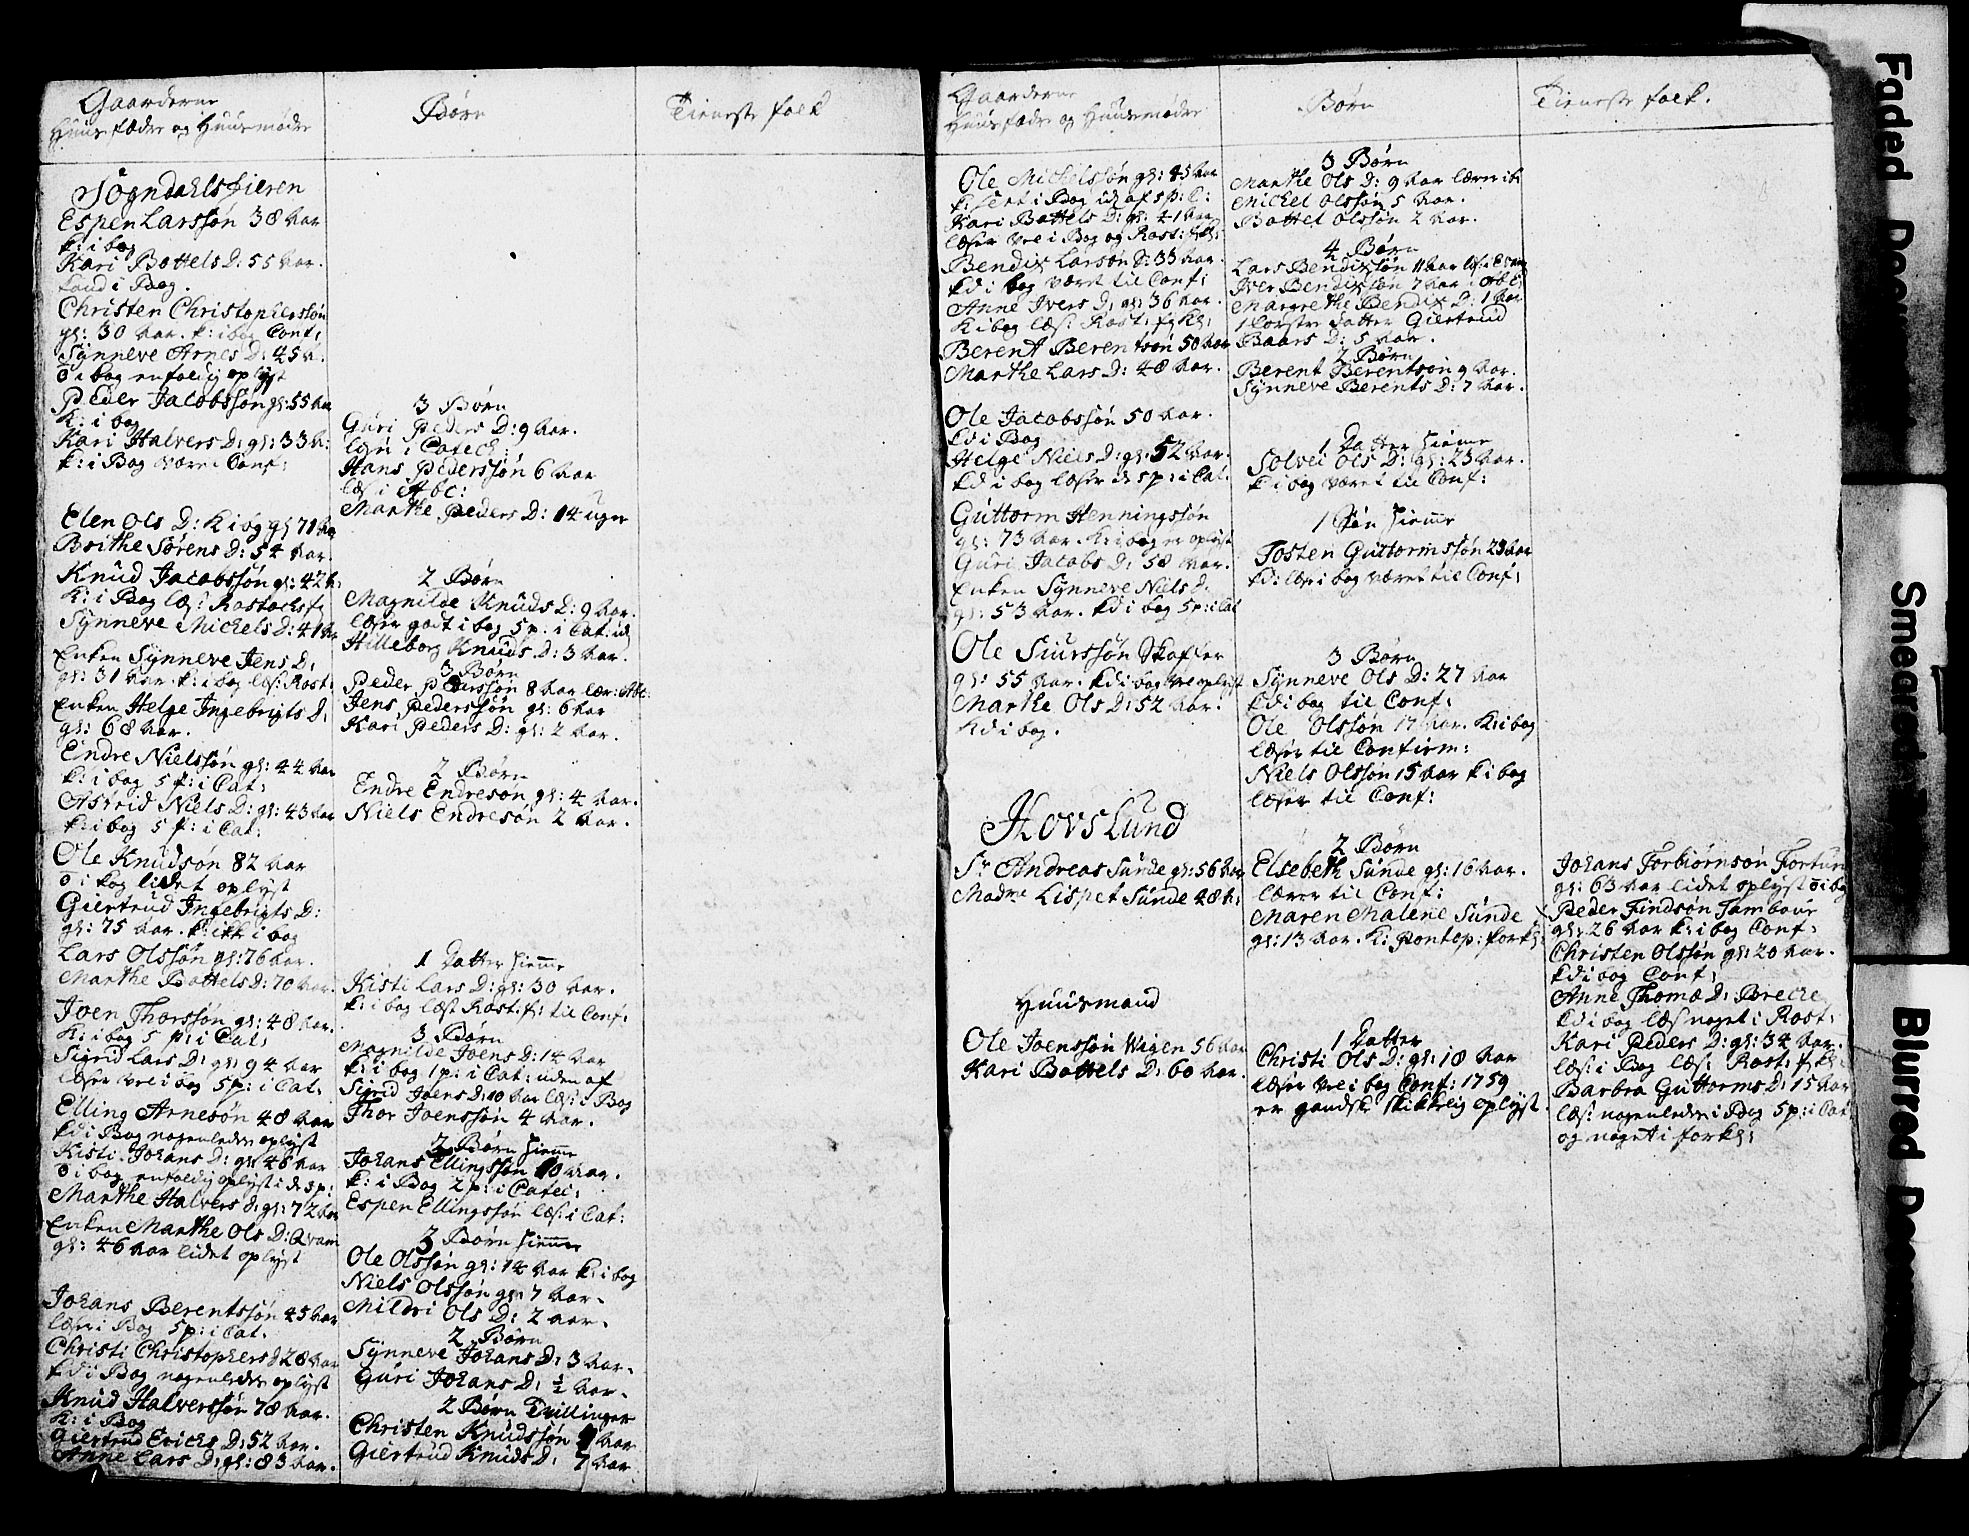 Gaarderne
Huus fædre og Huusmødre
Børn
Tieneste folk
Sogndahlsfieren
Espen Larssøn 38 Aar
k: i bog
Kari Bottels D: 55 Aar.
i Bog.
Christen Christophersøn
gl: 30 Aar. k: i bog Conf:
Synneve Arnes D: 45 A.
i bog enfoldig oplyst
Peder Jacobssøn gl: 55 Aar
K: i bog
Kari Halvers D: gl: 33 A:
k: i Bog Conf:
Elen Ols D: K i bog gl 71 Aar
Brithe Sørens D: 54 Aar.
Knud Jacobssøn gl: 42 A:
K: i Bog læs:
Synneve Michels D: 41 Aar
Enken Synneve Jens D:
gl: 31 Aar. k: i bog læs: Rost:
Enken Helge Ingebrigts D:
gl: 68 Aar.
Endre Nielssøn gl: 44 Aar
k: i bog 5 p: i Cat:
Astrid Niels D: gl: 43 Aar
k: i bog 5 p: i Cat:
Ole Knudsøn 82 Aar
i bog lidet oplyst
Giertrud Ingebrigts D:
gl: 75 Aar. k: ikk i bog
Lars Olssøn gl: 76 Aar.
Marthe Bottels D: 70 Aar.
Joen Thorssøn gl: 48 Aar.
K: i bog 5 p: i Cat:
Sigrid Lars D: gl: 94 Aar
læser vel i bog 5 p: i Cat:
Elling Arnesøn 48 Aar
kd i Bog nogenledes oplyst
Kisti Johans D: gl: 46 Aar
i bog enfoldig oplyst i de 5 p:
Marthe Halvers D: gl: 72 Aar
Enken Marthe Ols D: Qvam
gl: 46 Aar lidet oplyst
Johans Berentssøn 45 Aar
læser i Bog 5 p: i Cat.
Christi Christophers D 28 Aar
kd i Bog nogenledes oplyst
Knud Halverssøn 78 Aar.
K: i Bog
Giertrud Erichs D: 52 Aar.
Anne Lars D: gl: 83 Aar.
3 Børn
Guri Peders D: 9 Aar.
i Catech:
Hans Pederssøn 6 Aar
læs: i Abc:
Marthe Peders D: 14 uger
2 Børn
Magnilde Knuds D: 9 Aar.
læser godt i bog 5 p: i Cat:
Hilleborg Knuds D: 3 Aar.
3 Børn
Peder Pederssøn 8 Aar lær: Abc:
Jens Pederssøn gl: 6 Aar
Kari Peders D: gl: 2 Aar.
2 Børn
Endre Endresøn gl: 4 Aar.
Niels Endresøn 2 Aar.
1 Datter hiemme
Kisti Lars D: gl: 30 Aar.
k: i bog læst Rost: f: til Conf:
3 Børn
Magnilde Joens D: 14 Aar
k: i bog 1 p: i Cat: uden af
Sigrid Joens D: 10 Aar læs: i Bog
Thor Joenssøn 4 Aar.
2 Børn hiemme
Johans Ellingssøn 10 Aar.
k: i Bog 2 p: i Catec:
Espen Ellingssøn læs: i Cat:
3 Børn hiemme
Ole Olssøn gl: 14 Aar k: i bog
Niels Olssøn gl: 7 Aar.
Mildri Ols D: 2 Aar.
2 Børn
Synneve Johans D: 3 Aar.
Guri Johans D: ½ Aar.
2 Børn Tvillinger
Christen Knudssøn Aar
Giertrud Knuds D: 7 Aar
Gaarderne
Huus fædre og Huusmødre
Børn
Tieneste folk.
Ole Michelssøn gl: 45 Aar
i Bog af 5 p: C:
Kari Bottels D: gl: 41 Aar
læser vel i Bog og Rost:
Bendix Larsøn 33 Aar.
kd i bog været til Conf:
Anne Ivers D: gl: 36 Aar.
K i bog læs: Rost: f
Berent Berentsøn 50 Aar
Marthe Lars D: 48 Aar.
Ole Jacobssøn 50 Aar.
kd i Bog
Helge Niels D: gl: 52 Aar.
kd i bog læser de 5 p: i Cat.
Guttorm Henningssøn
gl: 73 Aar. K: i bog er oplyst
Guri Jacobs D: 58 Aar.
Enken Synneve Niels D.
gl: 53 Aar. kd i bog 5 p: i Cat
Ole Siurssøn Skafter
gl: 55 Aar. kd i bog vel oplyst
Marthe Ols D: 52 Aar.
Kd i bog.
Hovslund
Sr Andreas Sunde gl: 56 Aar
Madme Lispet Sunde 48 A:
Huusmand
Ole Joenssøn Wigen 56 Aar
Kari Bottels D: 60 Aar.
3 Børn
Marthe Ols D: 9 Aar lærer i b:
Michel Olssøn 5 Aar.
Bottel Olssøn 2 Aar.
4 Børn
Lars Bendixsøn 11 Aar
Iver Bendixsøn 7 Aar i Abc:
Margrethe Bendix D: 1 Aar
1 Datter Giertrud
Baars D: 5 Aar.
2 Børn
Berent Berentsøn 9 Aar.
Synneve Berents D: 7 Aar.
1 Datter hieme
Solvei Ols D: gl: 23 Aar.
k i bog været til Conf:
1 Søn hieme
Tosten Guttormssøn 23 Aar
kd: læser i bog været til Conf:
3 Børn
Synneve Ols D: 27 Aar
kd i bog til Conf:
Ole Olssøn 17 Aar. K: i bog
læser til Confirm:
Niels Olssøn 15 Aar k i bog
læser til Conf:
2 Børn
Elsebeth Sunde gl: 16 Aar.
lærer til Conf:
Maren Malene Sunde
gl: 13 Aar. K: Pontop: forkl:
1 Datter
Christi Ols D: gl: 18 Aar
læser vel i bog Conf: 1759
er gandske skikkelig oplyst.
Johans Torbiørnsøn Fortun
gl: 63 Aar lidet oplyst i bog
Peder Findsøn Tambour
gl: 26 Aar k: i bog Conf:
Christen Olssøn gl: 20 Aar.
kd i bog Conf:
Anne Thomæ D: Brecke
kd i bog læs noget i Rost:
Kari Peders D: gl: 34 Aar.
læs: i Bog læs: Rost: f
Barbra Guttorms D: 15 Aar
læs: nogenledes i Bog 5 p: i Cat:
og noget i forkl:
Faded Docu
Smeared
Blurred Docu